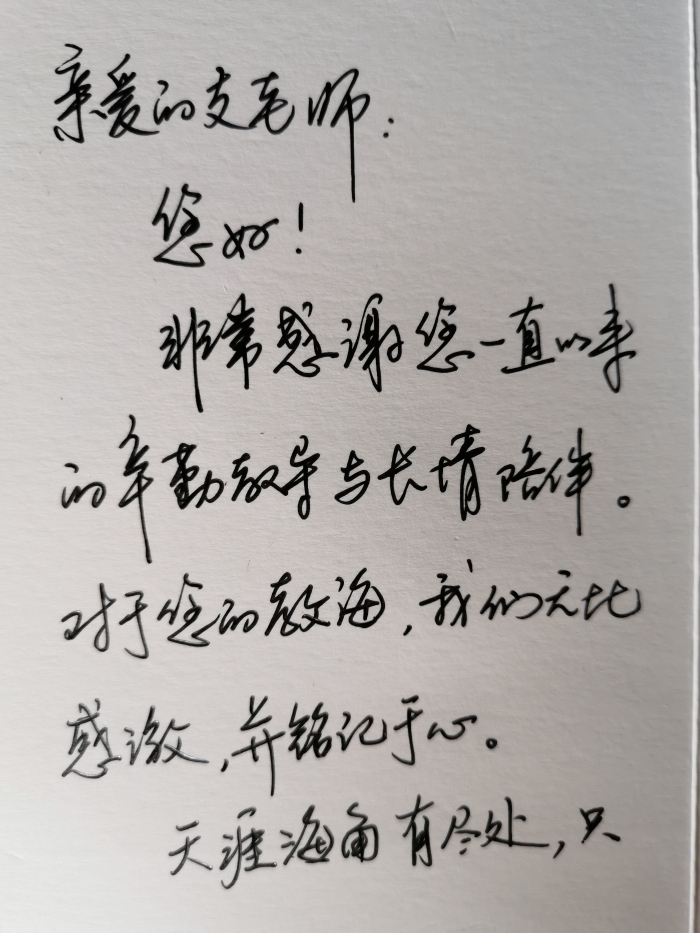 亲爱的支老师：
您好！
非常感谢您一直以来
的辛勤教导与长情陪伴。
对于您的教诲，我们无比
感激，并铭记于心。
天涯海角有尽处，只